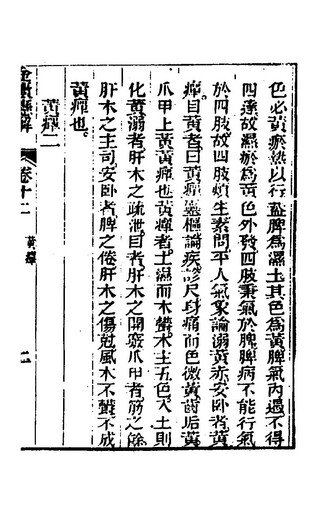 色必黃瘀熱以行盖脾爲濕土其色爲黃脾氣內遏不得
四達故濕瘀爲黃色外發四肢秉氣於脾脾病不能行氣
於四肢故四肢煩生素問平人氣象論溺黃赤安卧者黃
疸目黃者曰黃疸靈樞論疾診尺身痛而色微黃齒垢黃
爪甲上黃黃疸也黃疸者土濕而木鬱木主五色入土則
化黃溺者肝木之疏泄目者肝木之開竅爪甲者筋之餘
肝木之主司安卧者脾之倦肝木之傷尅風木不鬱不成
黃疸也
黃疸二
卷十二
黃疸
二